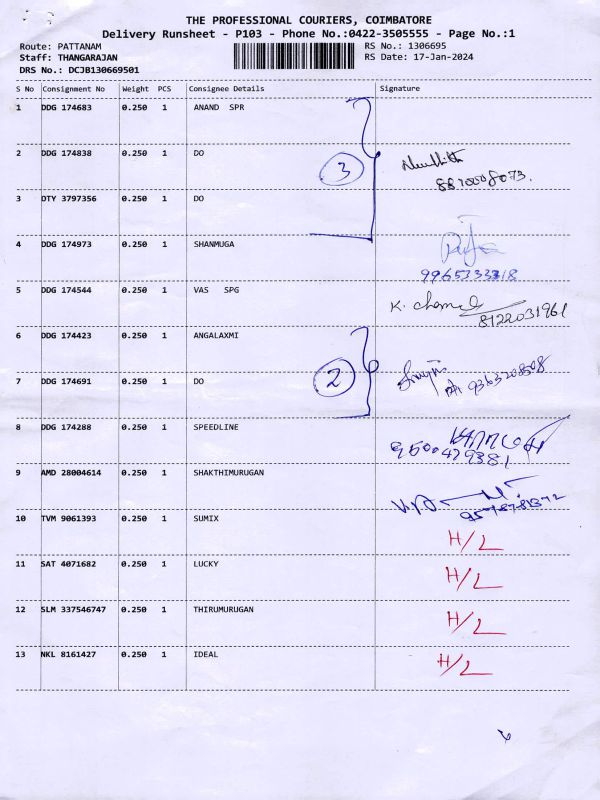 THE PROFESSIONAL COURIERS, COIMBATORE
Delivery Runsheet - P103 - Phone No.:0422-3505555 - Page No.:1
Route: PATTANAM RS No.: 1306695
Staff: THANGARAJAN RS Date: 17-Jan-2024
DRS No.: DCJB130669501
S No Consignment No Weight PCS Consignee Details Signature
1 DDG 174683 0.250 1 ANAND SPR
2 DDG 174838 0.250 1 DO 3
3 DTY 3797356 0.250 1 DO
4 DDG 174973 0.250 1 SHANMUGA
9965333318
5 DDG 174544 0.250 1 VAS SPG K. 
8122031961
6 DDG 174423 0.250 1 ANGALAXMI
7 DDG 174691 0.250 1 DO 2 9363208508
8 DDG 174288 0.250 1 SPEEDLINE
9500479381
9 AMD 28004614 0.250 1 SHAKTHIMURUGAN
10 TVM 9061393 0.250 1 SUMIX H/L
11 SAT 4071682 0.250 1 LUCKY H/L
12 SLM 337546747 0.250 1 THIRUMURUGAN H/L
13 NKL 8161427 0.250 1 IDEAL H/L